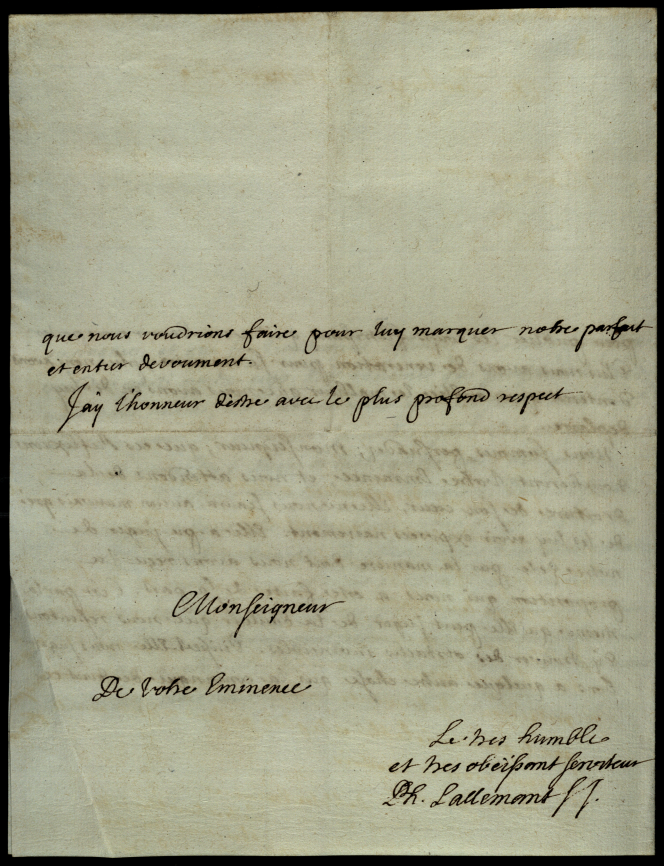 que nous voudrions faire pour luy marquer notre parfait
et entier devoument.
J'aÿ l'honneur d'estre avec le plus profond respect
Monseigneur
De Votre Eminence
Le tres humble
et tres obeïssant serviteur
Ph. Lallemant SJ.